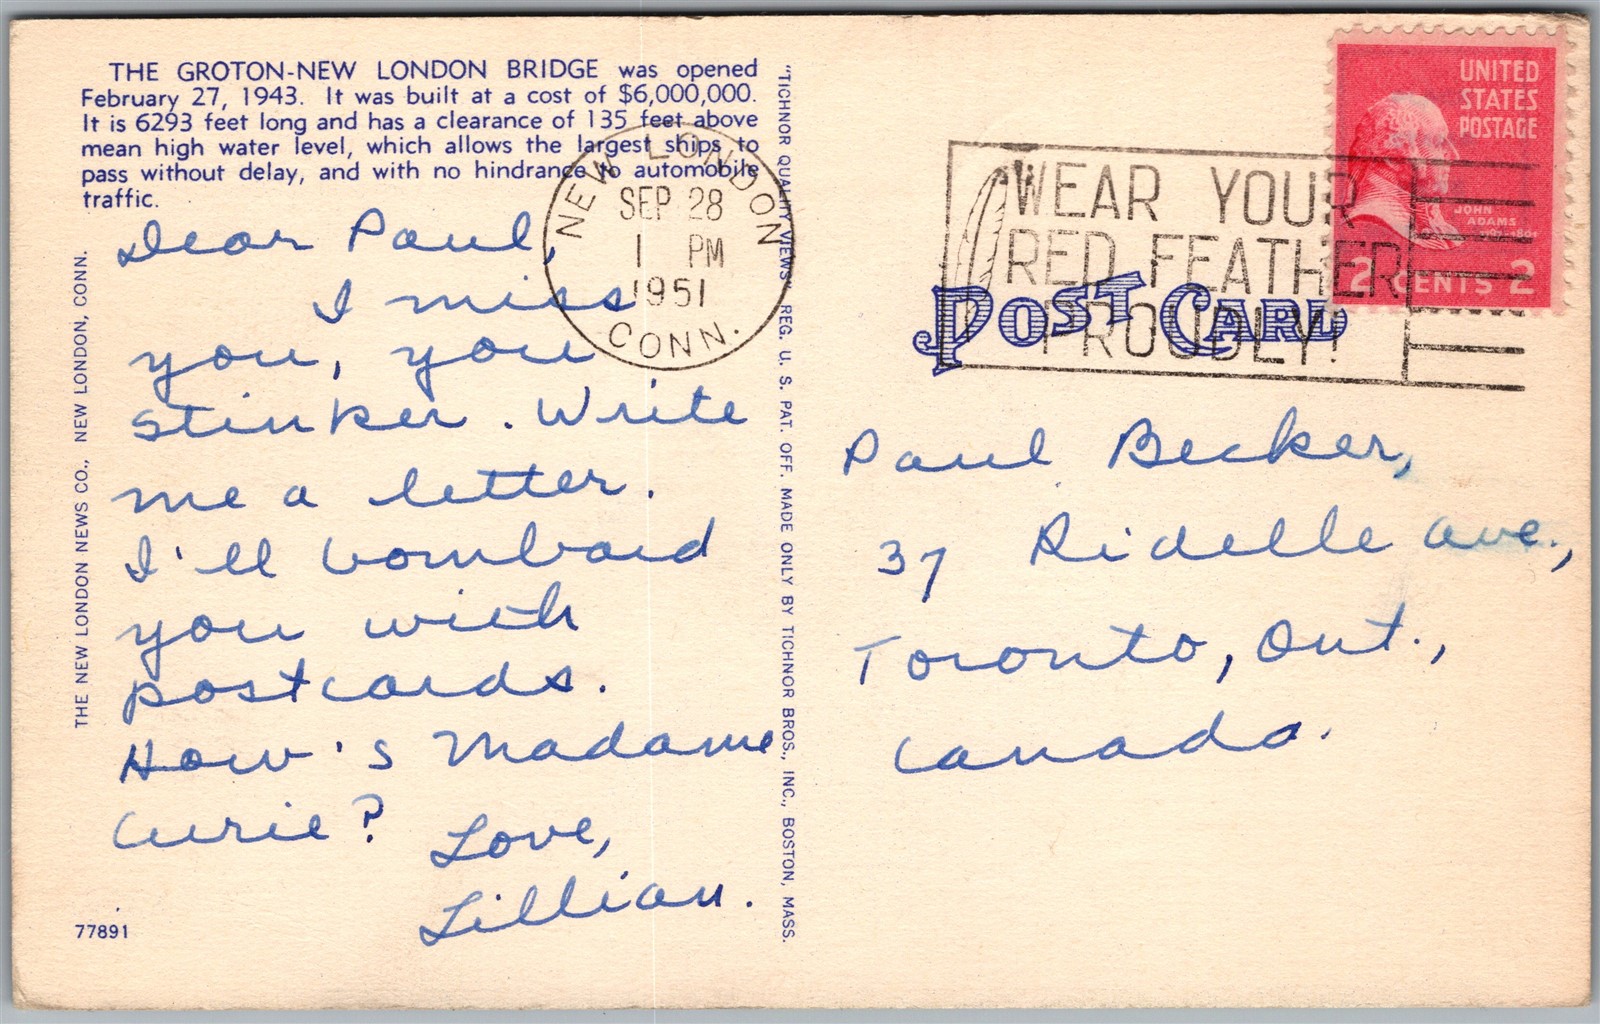 THE GROTON-NEW LONDON BRIDGE was opened
February 27, 1943. It was built at a cost of $6,000,000.
It is 6293 feet long and has a clearance of 135 feet above
mean high water level, which allows the largest ships to
pass without delay, and with no hindrance to automobile
traffic.
Dear Paul,
I miss
you, you
stinker. Write
me a letter.
I'll bombard
you with
postcards.
How's Madame
Curie?
Love,
Lillian.
77891
THE NEW LONDON NEWS CO., NEW LONDON, CONN.
"TICHNOR QUALITY VIEWS" REG. U. S. PAT. OFF. MADE ONLY BY TICHNOR BROS., INC., BOSTON, MASS.
NEW LONDON
SEP 28
1 PM
1951
CONN.
WEAR YOUR
RED FEATHER
PROUDLY!
POST CARD
UNITED
STATES
POSTAGE
JOHN
ADAMS
2 CENTS 2
Paul Becker,
37 Ridelle Ave.,
Toronto, Ont.,
Canada.